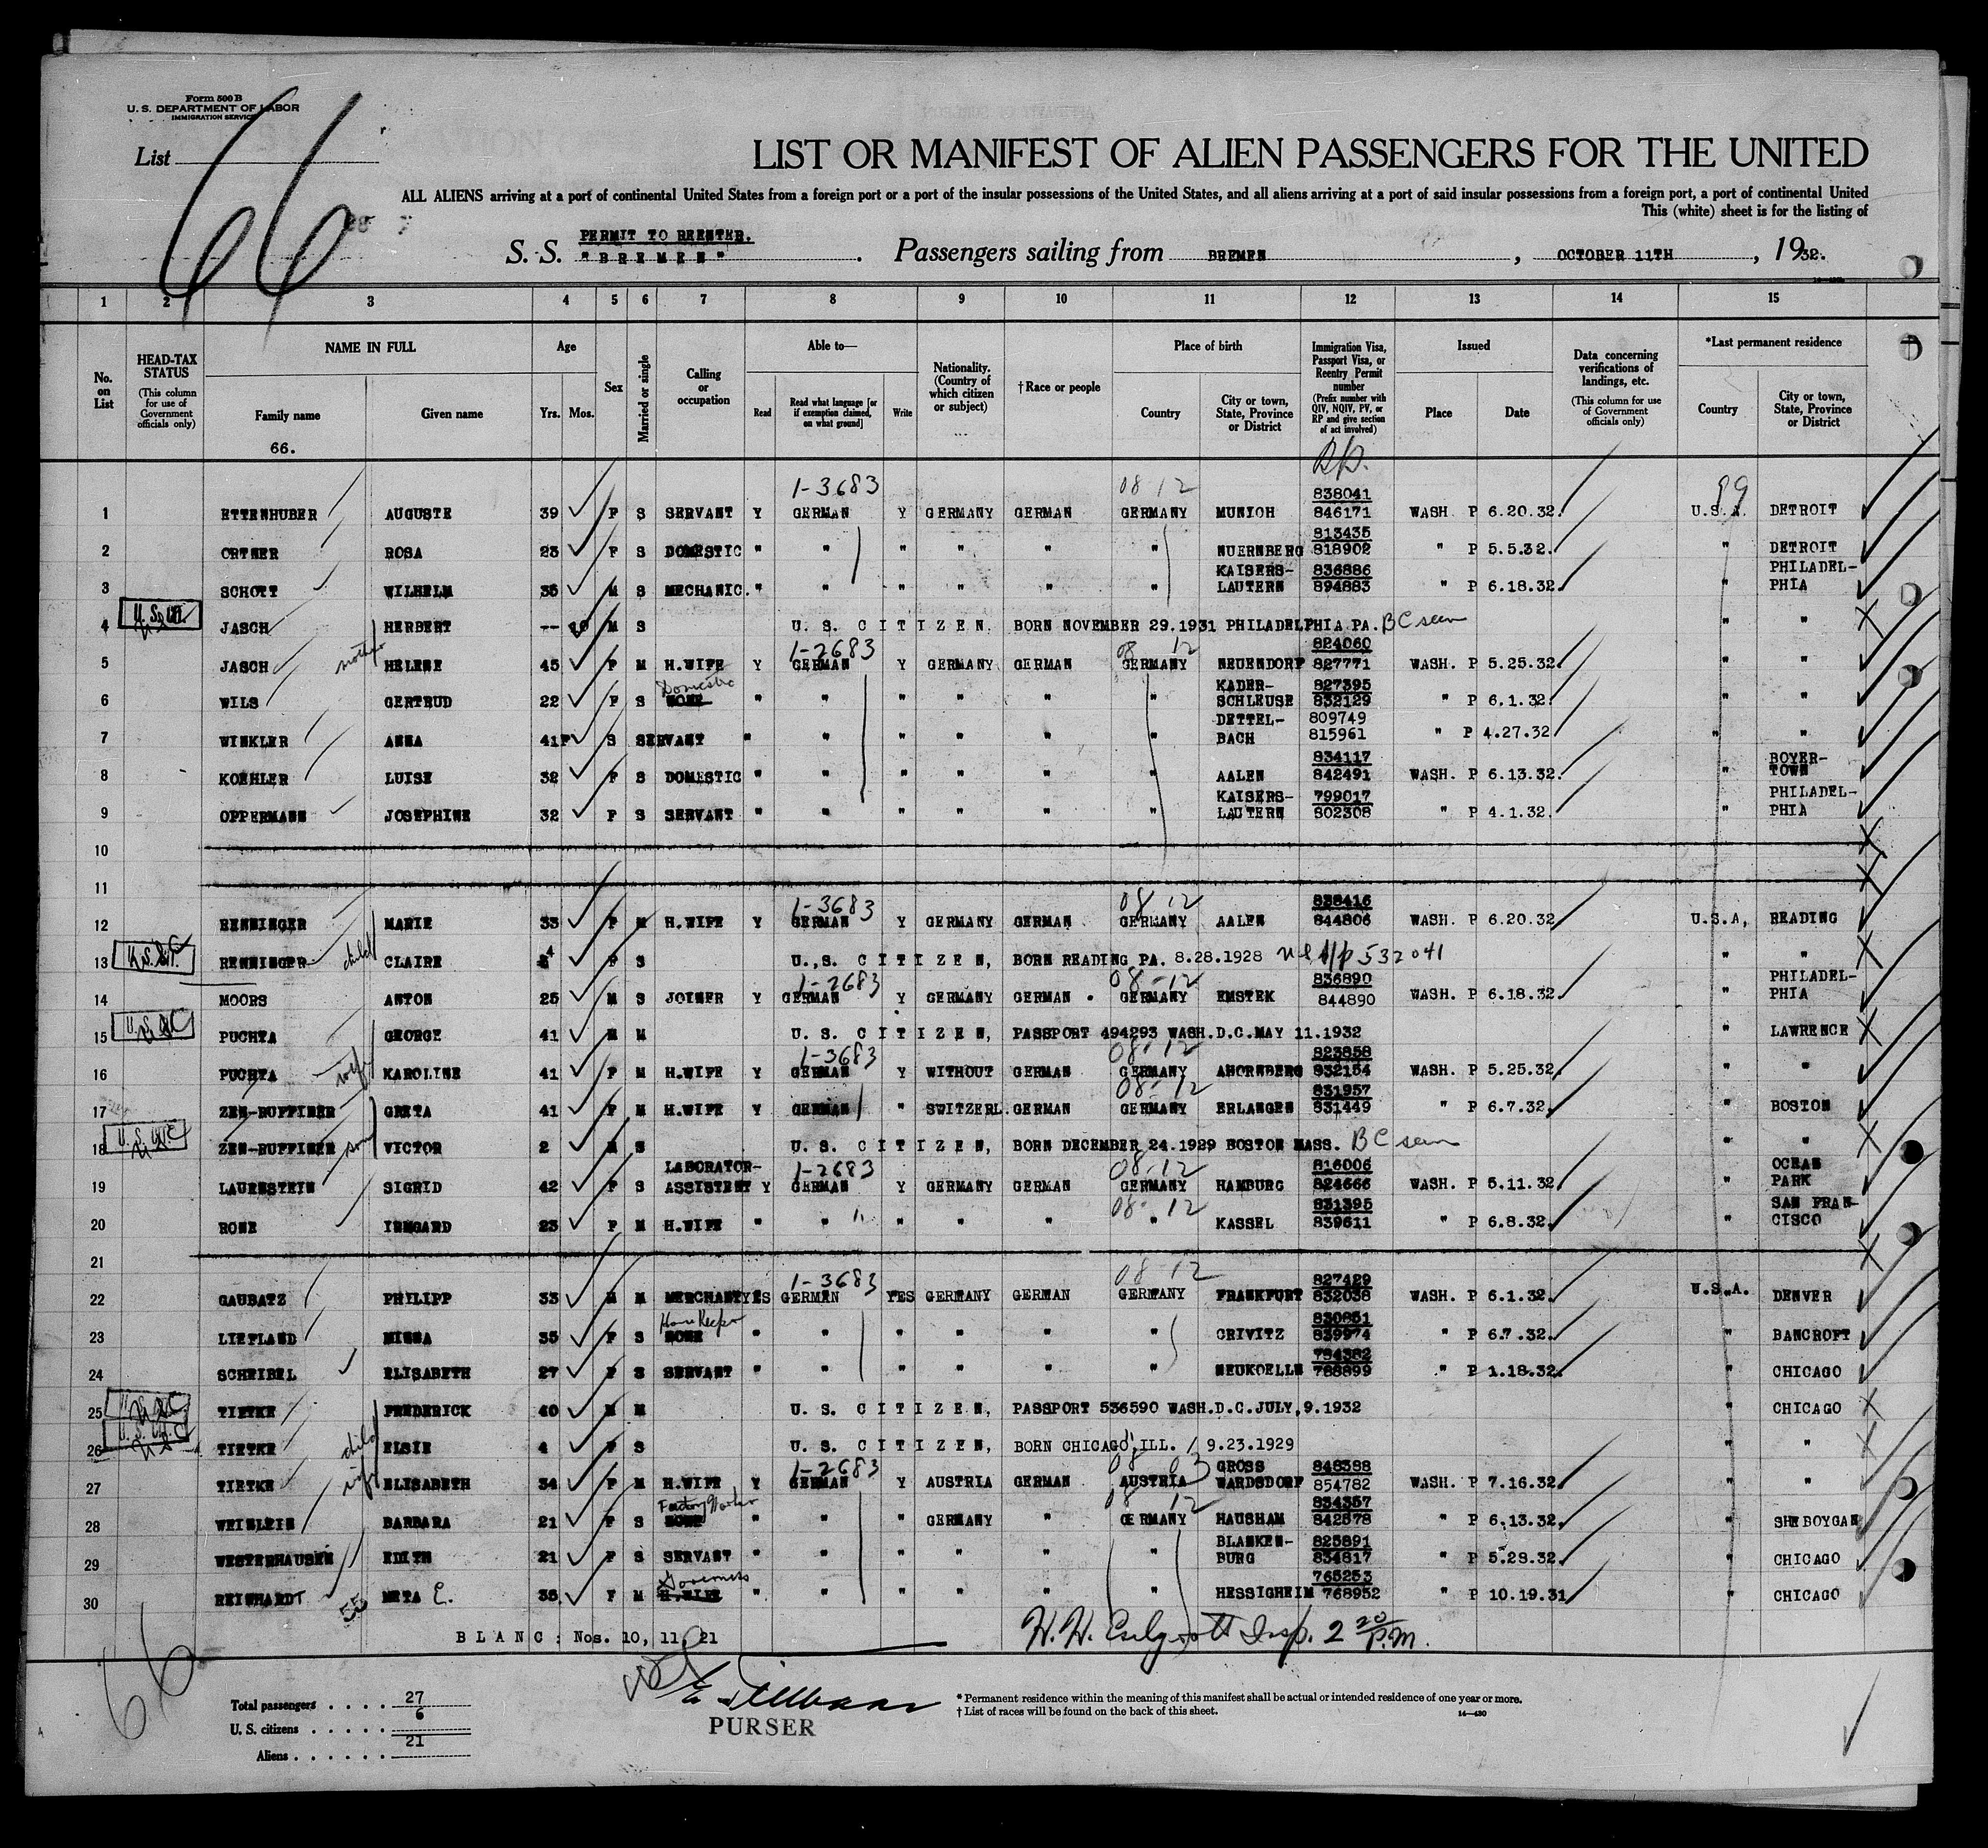 Form 500 B
U. S. DEPARTMENT OF LABOR
IMMIGRATION SERVICE
List 66
LIST OR MANIFEST OF ALIEN PASSENGERS FOR THE UNITED
ALL ALIENS arriving at a port of continental United States from a foreign port or a port of the insular possessions of the United States, and all aliens arriving at a port of said insular possessions from a foreign port, a port of continental United
This (white) sheet is for the listing of
PERMIT TO REENTER.
S. S. "BREMEN". Passengers sailing from BREMEN, OCTOBER 11TH, 1932.
1 2 3 4 5 6 7 8 9 10 11 12 13 14 15
No. on List
HEAD-TAX STATUS (This column for use of Government officials only)
NAME IN FULL Family name Given name
66.
Age Yrs. Mos.
Sex
Married or single
Calling or occupation
Able to— Read Read what language [or if exemption claimed, on what ground] Write
Nationality. (Country of which citizen or subject)
† Race or people
Place of birth Country City or town, State, Province or District
Immigration Visa, Passport Visa, or Reentry Permit number (Prefix number with QIV, NQIV, PV, or RP and give section of act involved)
Issued Place Date
Data concerning verifications of landings, etc. (This column for use of Government officials only)
*Last permanent residence Country City or town, State, Province or District
1-3683 08 12 838041 99
1 ETTENHUBER AUGUSTE 39 F S SERVANT Y GERMAN Y GERMANY GERMAN GERMANY MUNICH 846171 WASH. P 6.20.32. U.S.A. DETROIT
813435
2 ORTNER ROSA 23 F S DOMESTIC " " " " " " NUERNBERG 818902 " P 5.5.32. " DETROIT
KAISERS- 836886 PHILADEL-
3 SCHOTT WILHELM 35 M S MECHANIC. " " " " " " LAUTERN 894883 " P 6.18.32. " PHIA
4 JASCH HERBERT -- 10 M S U. S. CITIZEN. BORN NOVEMBER 29.1931 PHILADELPHIA PA. BC seen " "
1-2683 08 12 824060
5 JASCH mother HELENE 45 F M H.WIFE Y GERMAN Y GERMANY GERMAN GERMANY NEUENDORF 827771 WASH. P 5.25.32. " "
Domestic KADER- 827395
6 WILS GERTRUD 22 F S NONE " " " " " " SCHLEUSE 832129 " P 6.1.32. " "
DETTEL- 809749
7 WINKLER ANNA 41 F S SERVANT " " " " " " BACH 815961 " P 4.27.32 " "
834117 BOYER-
8 KOEHLER LUISE 32 F S DOMESTIC " " " " " " AALEN 842491 WASH. P 6.13.32. " TOWN
KAISERS- 799017 PHILADEL-
9 OPPERMANN JOSEPHINE 32 F S SERVANT " " " " " " LAUTERN 802308 " P 4.1.32. " PHIA
10
11
1-3683 08 12 838416
12 RENNINGER MARIE 33 F M H.WIFE Y GERMAN Y GERMANY GERMAN GERMANY AALEN 844806 WASH. P 6.20.32 U.S.A, READING
13 RENNINGER child CLAIRE 4 F S U.,S. CITIZEN, BORN READING PA. 8.28.1928 532041 " "
1-2683 08-12 836890 PHILADEL-
14 MOORS ANTON 25 M S JOINER Y GERMAN Y GERMANY GERMAN. GERMANY EMSTEK 844890 WASH. P 6.18.32. " PHIA
15 PUCHTA GEORGE 41 M M U. S. CITIZEN, PASSPORT 494293 WASH.D.C.MAY 11.1932 " LAWRENCE
1-3683 08-12 823858
16 PUCHTA wife KAROLINE 41 F M H.WIFE Y GERMAN Y WITHOUT GERMAN GERMANY AHORNBERG 832154 WASH. P 5.25.32. " "
08-12 831957
17 ZEN-RUFFINER GRETA 41 F M H.WIFE Y GERMAN " SWITZERL. GERMAN GERMANY ERLANGEN 831449 " P 6.7.32. " BOSTON
18 ZEN-RUFFINER son VICTOR 2 M S U. S. CITIZEN, BORN DECEMBER 24.1929 BOSTON MASS. BC seen " "
LABORATOR- 1-2683 08-12 816006 OCEAN
19 LAURNSTEIN SIGRID 42 F S ASSISTENT Y GERMAN Y GERMANY GERMAN GERMANY HAMBURG 824666 WASH. P 5.11.32. " PARK
08-12 831395 SAN FRAN-
20 RONE IRMGARD 23 F M H.WIFE " " " " " " KASSEL 839611 " P 6.8.32. " CISCO
21
1-3683 08-12 827429
22 GAUBATZ PHILIPP 33 M M MERCHANT YES GERMAN YES GERMANY GERMAN GERMANY FRANKFURT 832038 WASH. P 6.1.32. U.S.A. DENVER
House Keeper 830851
23 LIEPLAND MINNA 35 F S NONE " " " " " " CRIVITZ 839974 " P 6.7.32. " BANCROFT
784382
24 SCHEIBEL ELISABETH 27 F S SERVANT " " " " " " NEUKOELLN 788899 " P 1.18.32. " CHICAGO
25 TIETKE FREDERICK 40 M M U. S. CITIZEN, PASSPORT 536590 WASH.D.C.JULY,9.1932 " CHICAGO
26 TIETKE child ELSIE 4 F S U. S. CITIZEN, BORN CHICAGO, ILL. / 9.23.1929 " "
1-2683 08 03 GROSS 848388
27 TIETKE wife ELISABETH 34 F M H.WIFE Y GERMAN Y AUSTRIA GERMAN AUSTRIA WARDSDORF 854782 WASH. P 7.16.32. " "
Factory Worker 08 12 834357
28 WEINLEIN BARBARA 21 F S NONE " " " GERMANY " GERMANY HAUSHAM 842578 " P 6.13.32. " SHEBOYGAN
BLANKEN- 825891
29 WESTERHAUSEN EDITH 21 F S SERVANT " " " " " " BURG 834817 " P 5.28.32. " CHICAGO
Governess 765253
30 REINHARDT 55 META E. 35 F M H.WIFE " " " " " " HESSIGHEIM 768952 " P 10.19.31 " CHICAGO
BLANC: Nos. 10, 11, 21
Insp. 2 20 P.M.
66
Total passengers .... 27
U. S. citizens ..... 6
Aliens ...... 21
PURSER
* Permanent residence within the meaning of this manifest shall be actual or intended residence of one year or more.
† List of races will be found on the back of this sheet.
14—430